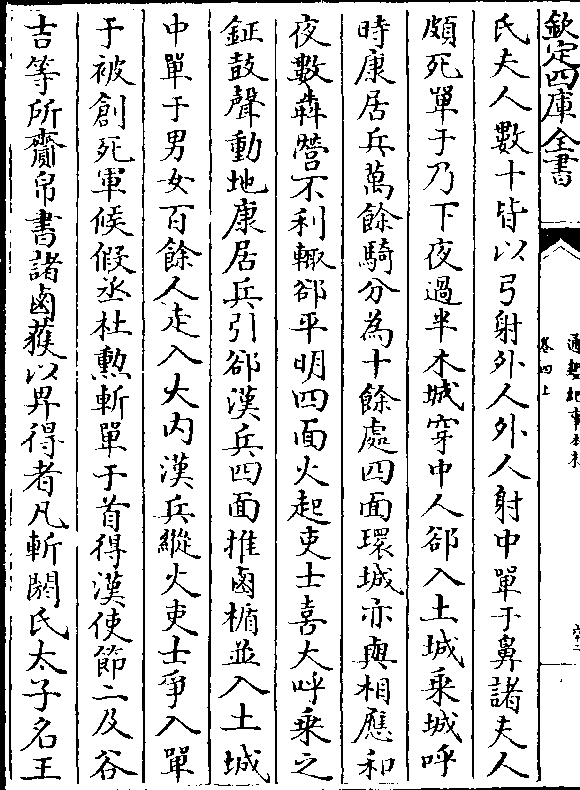 欽定四庫全書
通鑑紀事本末
卷四上
氏夫人數十皆以弓射外人外人射中單于鼻諸夫人
頗死單于乃下夜過半木城穿中人郤入土城乗城呼
時康居兵萬餘騎分為十餘處四面環城亦與相應和
夜數犇營不利輙郤平明四面火起吏士喜大呼乗之
鉦鼓聲動地康居兵引郤漢兵四面推鹵楯並入土城
中單于男女百餘人走入大内漢兵縱火吏士爭入單
于被創死軍候假丞杜勲斬單于首得漢使節二及谷
吉等所齎帛書諸鹵獲以畀得者凡斬閼氏太子名王